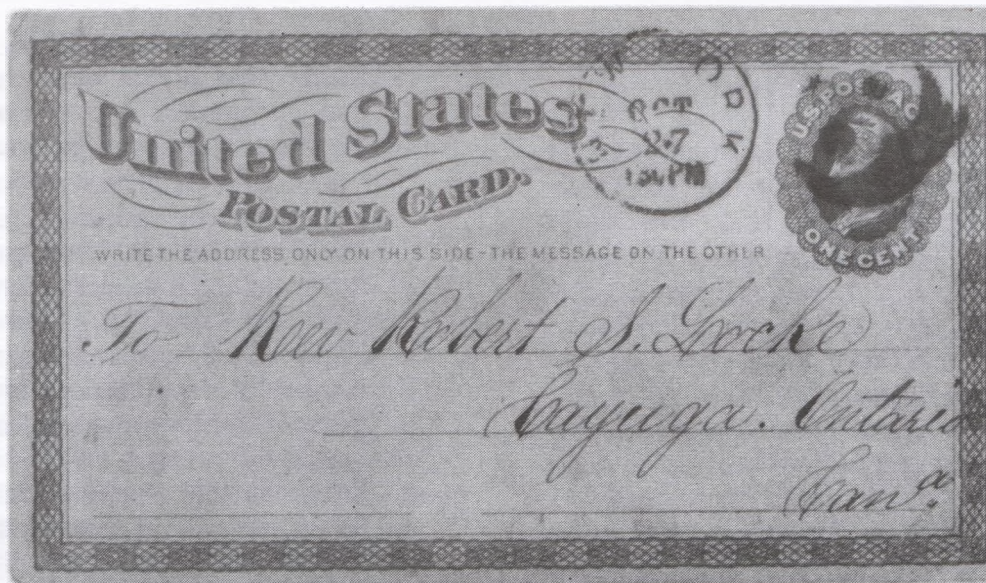 United States
POSTAL CARD.
NEW YORK
OCT
27
PM
U.S. POSTAGE
ONE CENT
WRITE THE ADDRESS ONLY ON THIS SIDE - THE MESSAGE ON THE OTHER
To Rev Robert S. Locke
Cayuga. Ontario
Canª.